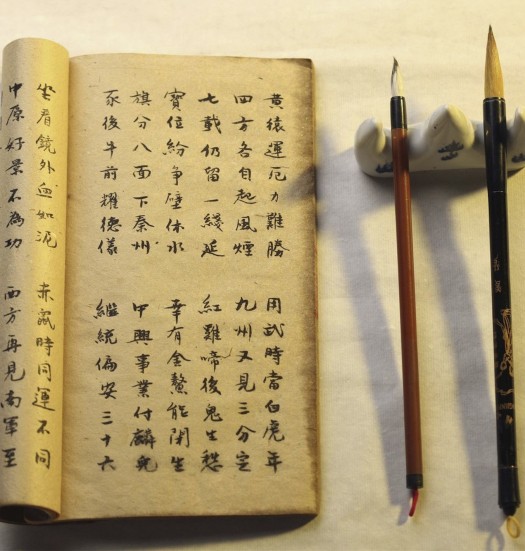 黃猿運厄力難勝 用武時當白虎年
四方各自起風煙 九州又見三分定
七載仍留一綫延 紅雞啼後鬼生愁
寶位紛争壁休水 幸有金鰲能生
旗分八面下秦州 中興事業付麟兒
豕後牛前耀德儀 繼統偏安三十六
坐看鏡外血如泥 赤鼠時同運不同
中原好景不為功 西方再見南軍至